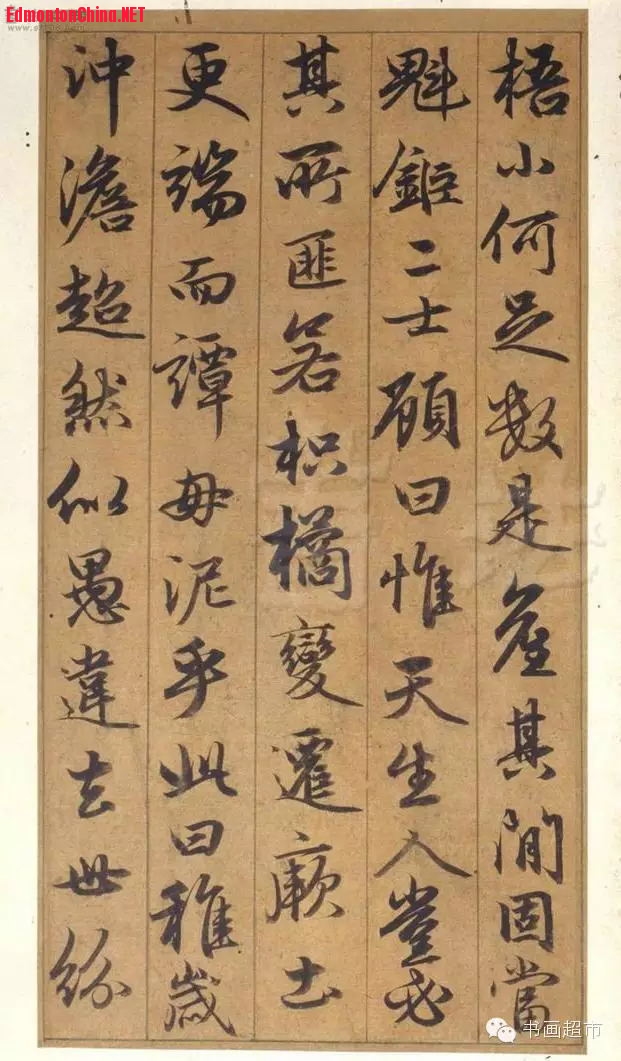 EdmontonChina.NET
梧小何足數是產其間固當
魁鉅二士顧曰惟天生人豈必
其所匪若枳橘變遷厥土
更端而譚毋泥乎此曰稚歲
沖澹超然似愚違去世紛
书画超市